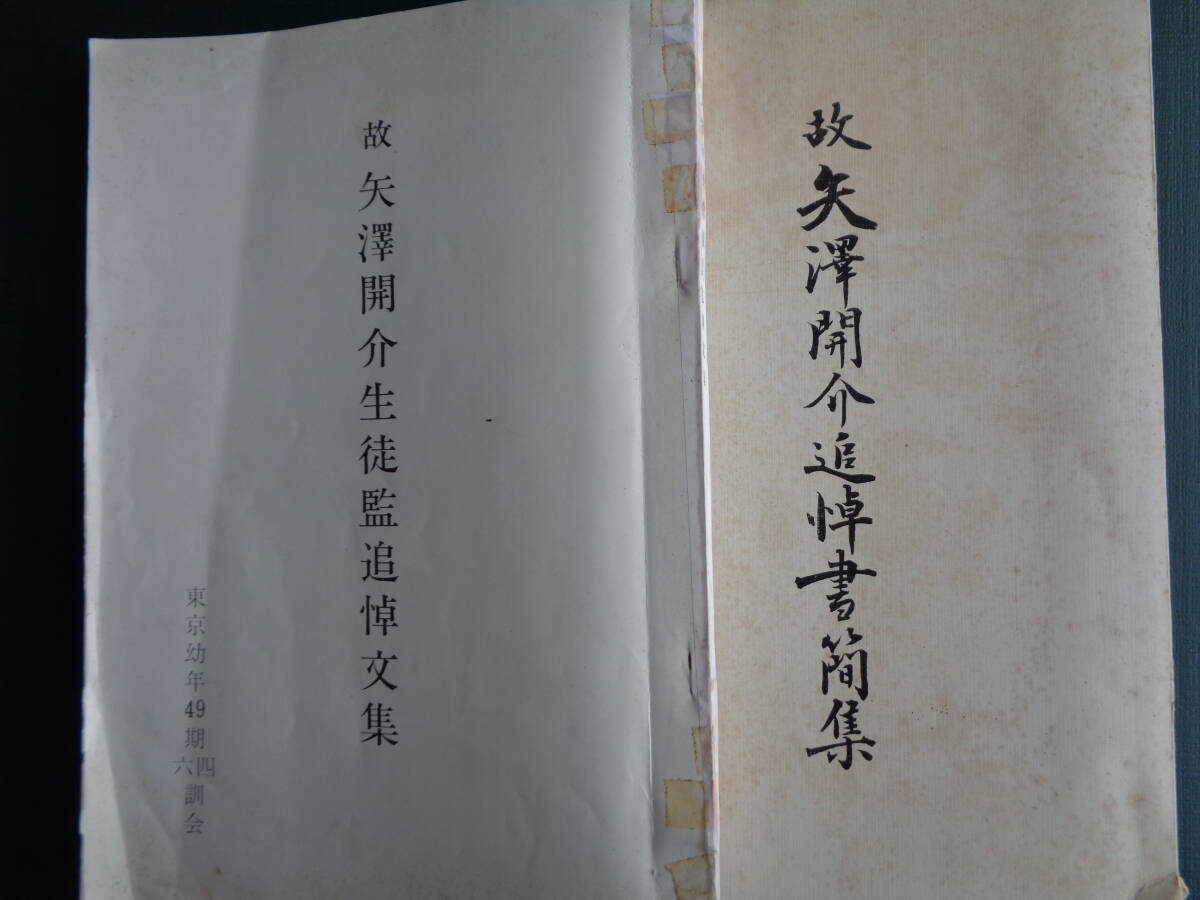 故矢澤開介追悼書簡集
故 矢澤開介生徒監追悼文集
東京幼年49期
四六訓会